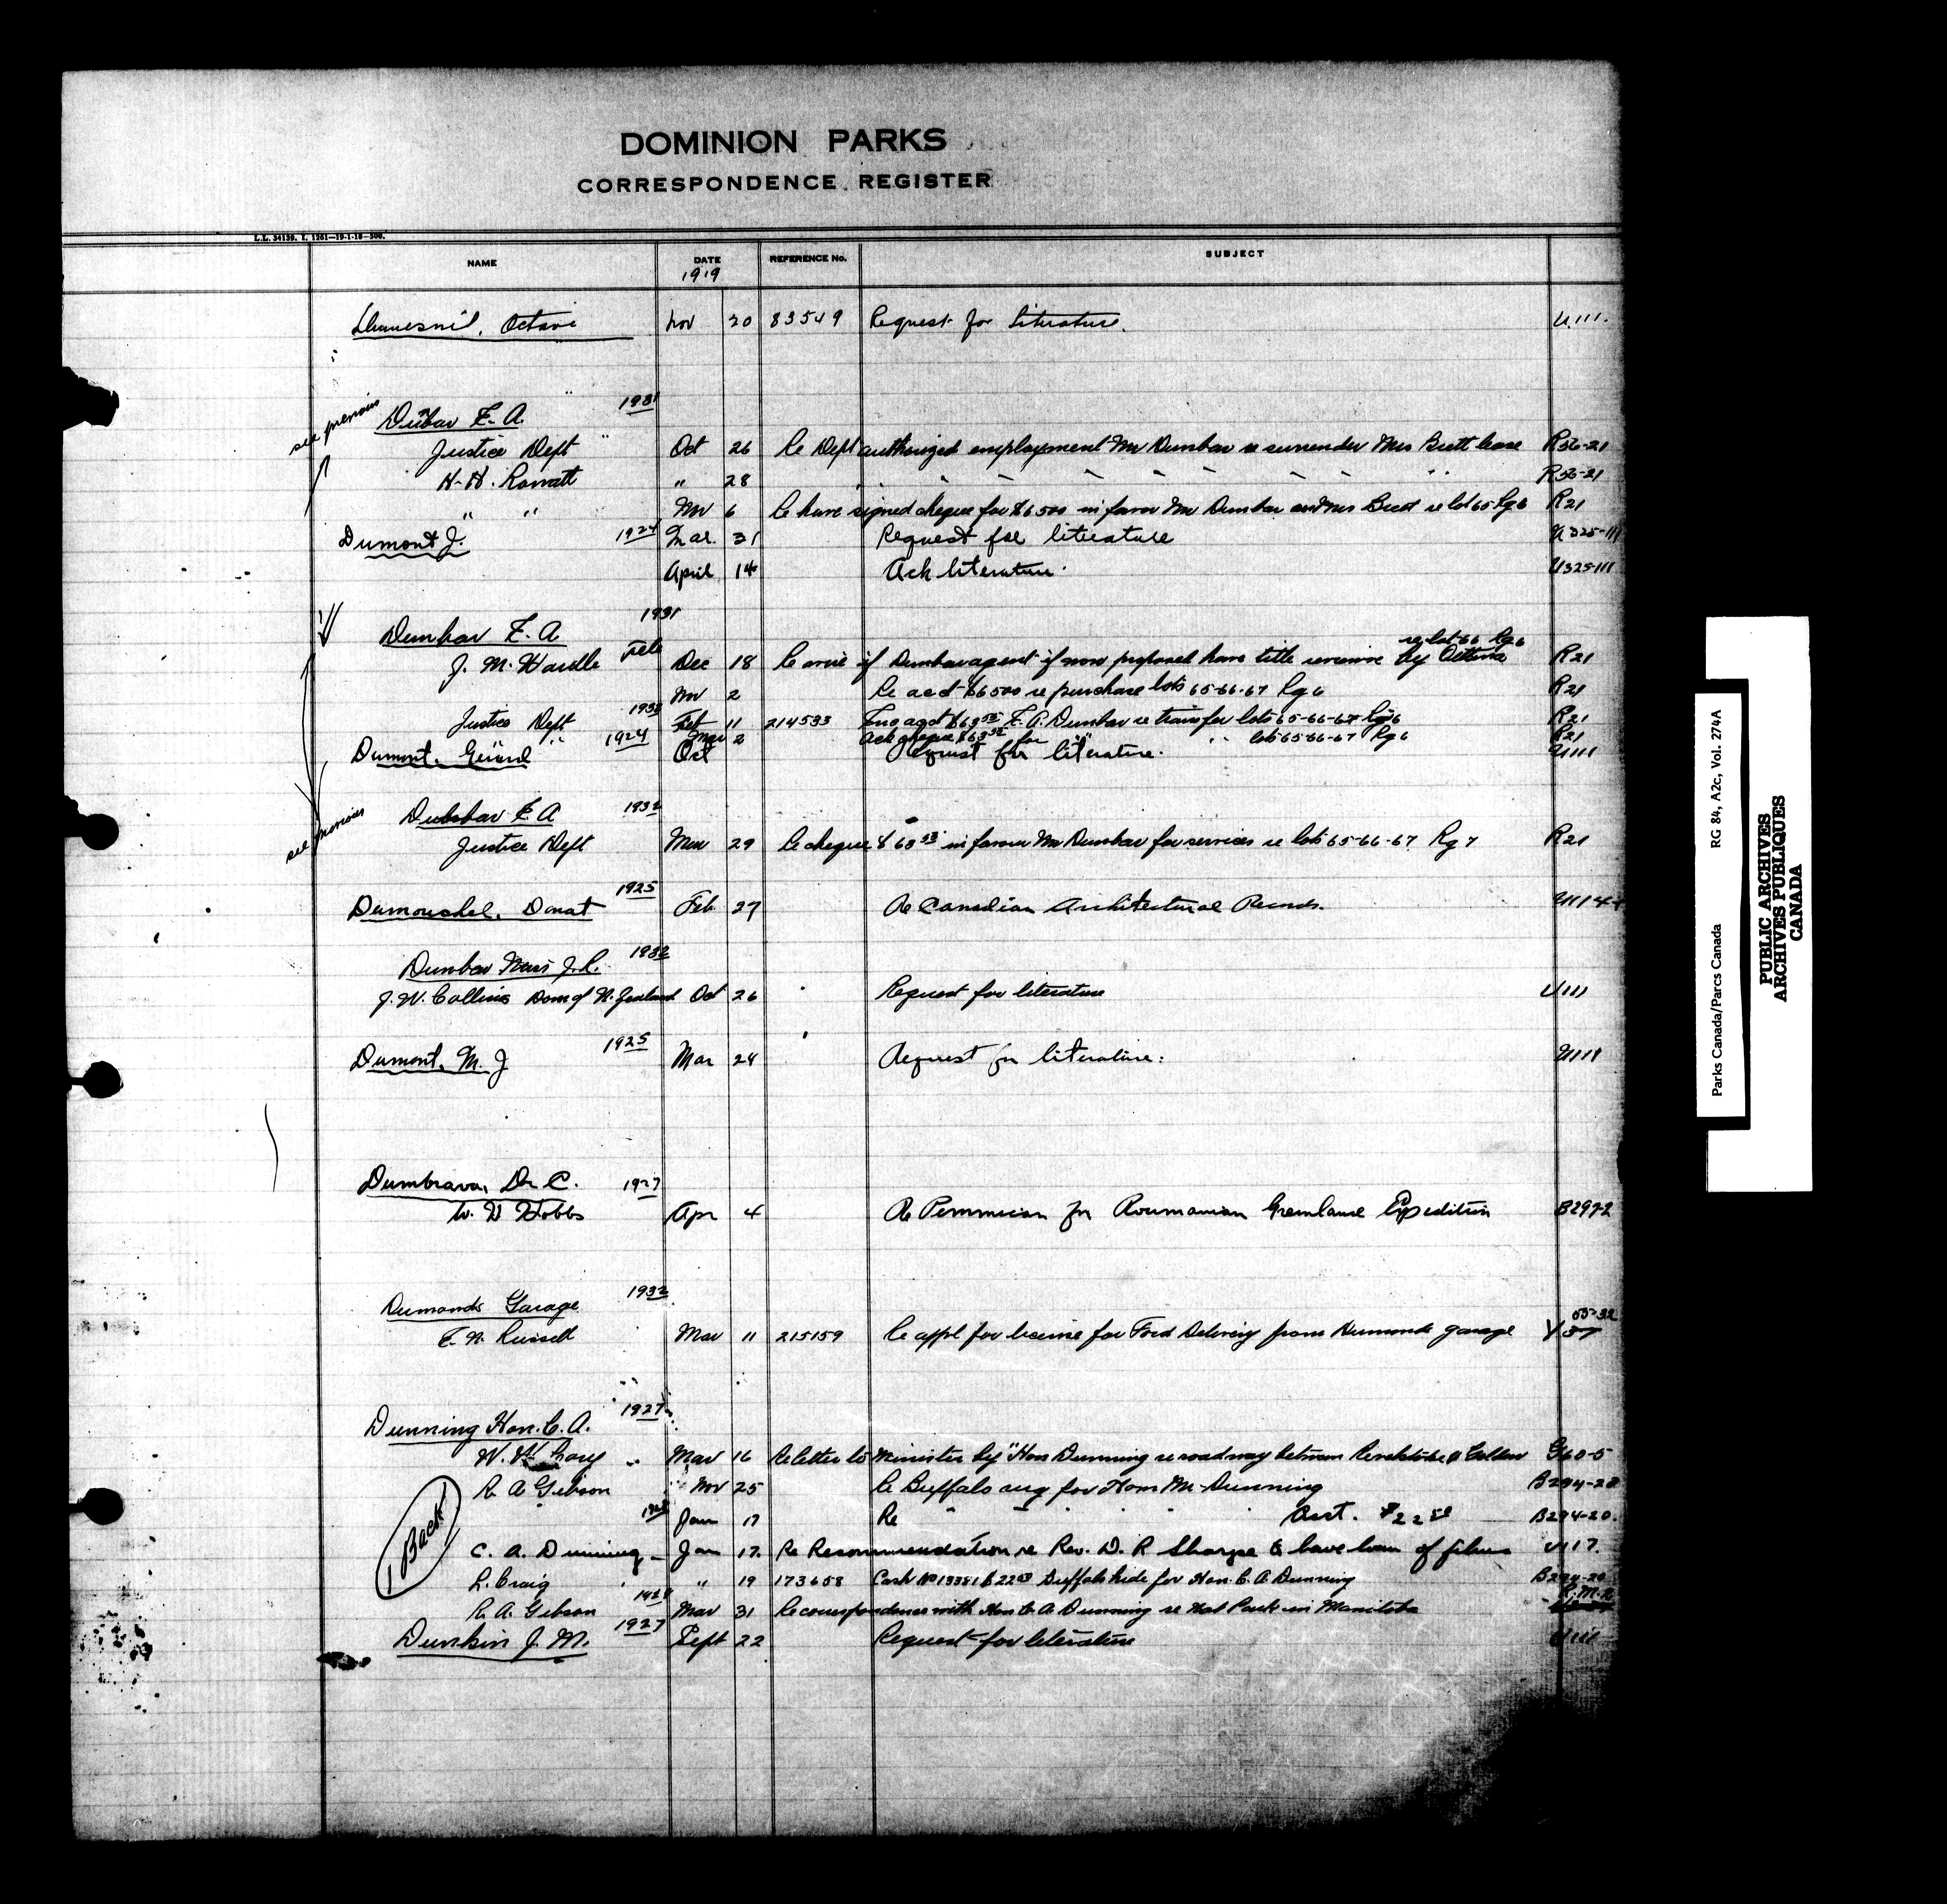 DOMINION PARKS
CORRESPONDENCE REGISTER
L.L. 34139. I. 1261—19-1-18—500.
NAME DATE REFERENCE No. SUBJECT
1919
Dhumesnil, Octave Nov 20 83549 Request for Literature. U.111.
see previous
Dunbar F. A. 1931
Justice Dept " Oct 26 Re Dept authorized employment Mr Dunbar re surrender Mrs Brett lease R56-21
H. H. Rowatt " 28 " " " " " R56-21
" " Nov 6 Re have signed cheque for $6500 in favor Mr Dunbar and Mrs Brett re lot 65 Rg 6 R21
Dumont J. 1924 Mar. 31 Request for literature U325-111
April 14 Ack literature. U325-111
Dunbar F. A. 1931
re lot 66 Rg 6
J. M. Wardle Feb Dec 18 Re if Dunbar agent if now proposed have title by Ottawa R21
Nov 2 Re acct $6500 re purchase lots 65-66-67 Rg 6 R21
Justice Dept 1932 Feb 11 214533 Enc acct $63 F. A. Dunbar re transfer lots 65-66-67 Rg 6 R21
" " Mar 2 Ack cheque $63 for " " lots 65-66-67 Rg 6 R21
Dumont, Gerard 1924 Oct Request for literature. U111
see previous
Dunbar F. A. 1932
Justice Dept Mar 29 Re cheque $63 in favour Mr Dunbar for services re lots 65-66-67 Rg 7 R21
Dumouchel, Donat 1925 Feb 27 Re Canadian Architectural Records. U1114
Dunbar Miss J. R. 1932
J. W. Collins Dom of N. Zealand Oct 26 Request for literature U111
Dumont, M. J 1925 Mar 24 Request for literature. U111
Dumbrava, Dr C. 1927
W. H Hobbs Apr 4 Re Pemmican for Roumanian Greenland Expedition B299-2
Dumonds Garage 1932
E. N. Russell Mar 11 215159 Re appl for license for Ford Delivery from Dumonds garage Y 55-32
57
Dunning Hon. C. A. 1927
W. W. Cory " Mar 16 Re letter to Minister by Hon Dunning re roadway between Revelstoke & Golden G60-5
R A Gibson " Nov 25 Re Buffalo rug for Hon Mr Dunning B294-20
" 1928 Jan 17 Re " " " Acct. $22.50 B294-20.
Back
C. A. Dunning Jan 17. Re Recommendation re Rev. D. R Sharpe to have loan of films U117.
R. Craig " " 19 173658 Cash No 13381 $22 Buffalo hide for Hon. C. A. Dunning B294-20
R. A. Gibson 1928 Mar 31 Re correspondence with Hon C A Dunning re Nat Park in Manitoba R.M.2
Dunkin J. M. 1927 Sept 22 Request for literature U111
Parks Canada/Parcs Canada RG 84, A2c, Vol. 274A
PUBLIC ARCHIVES
ARCHIVES PUBLIQUES
CANADA